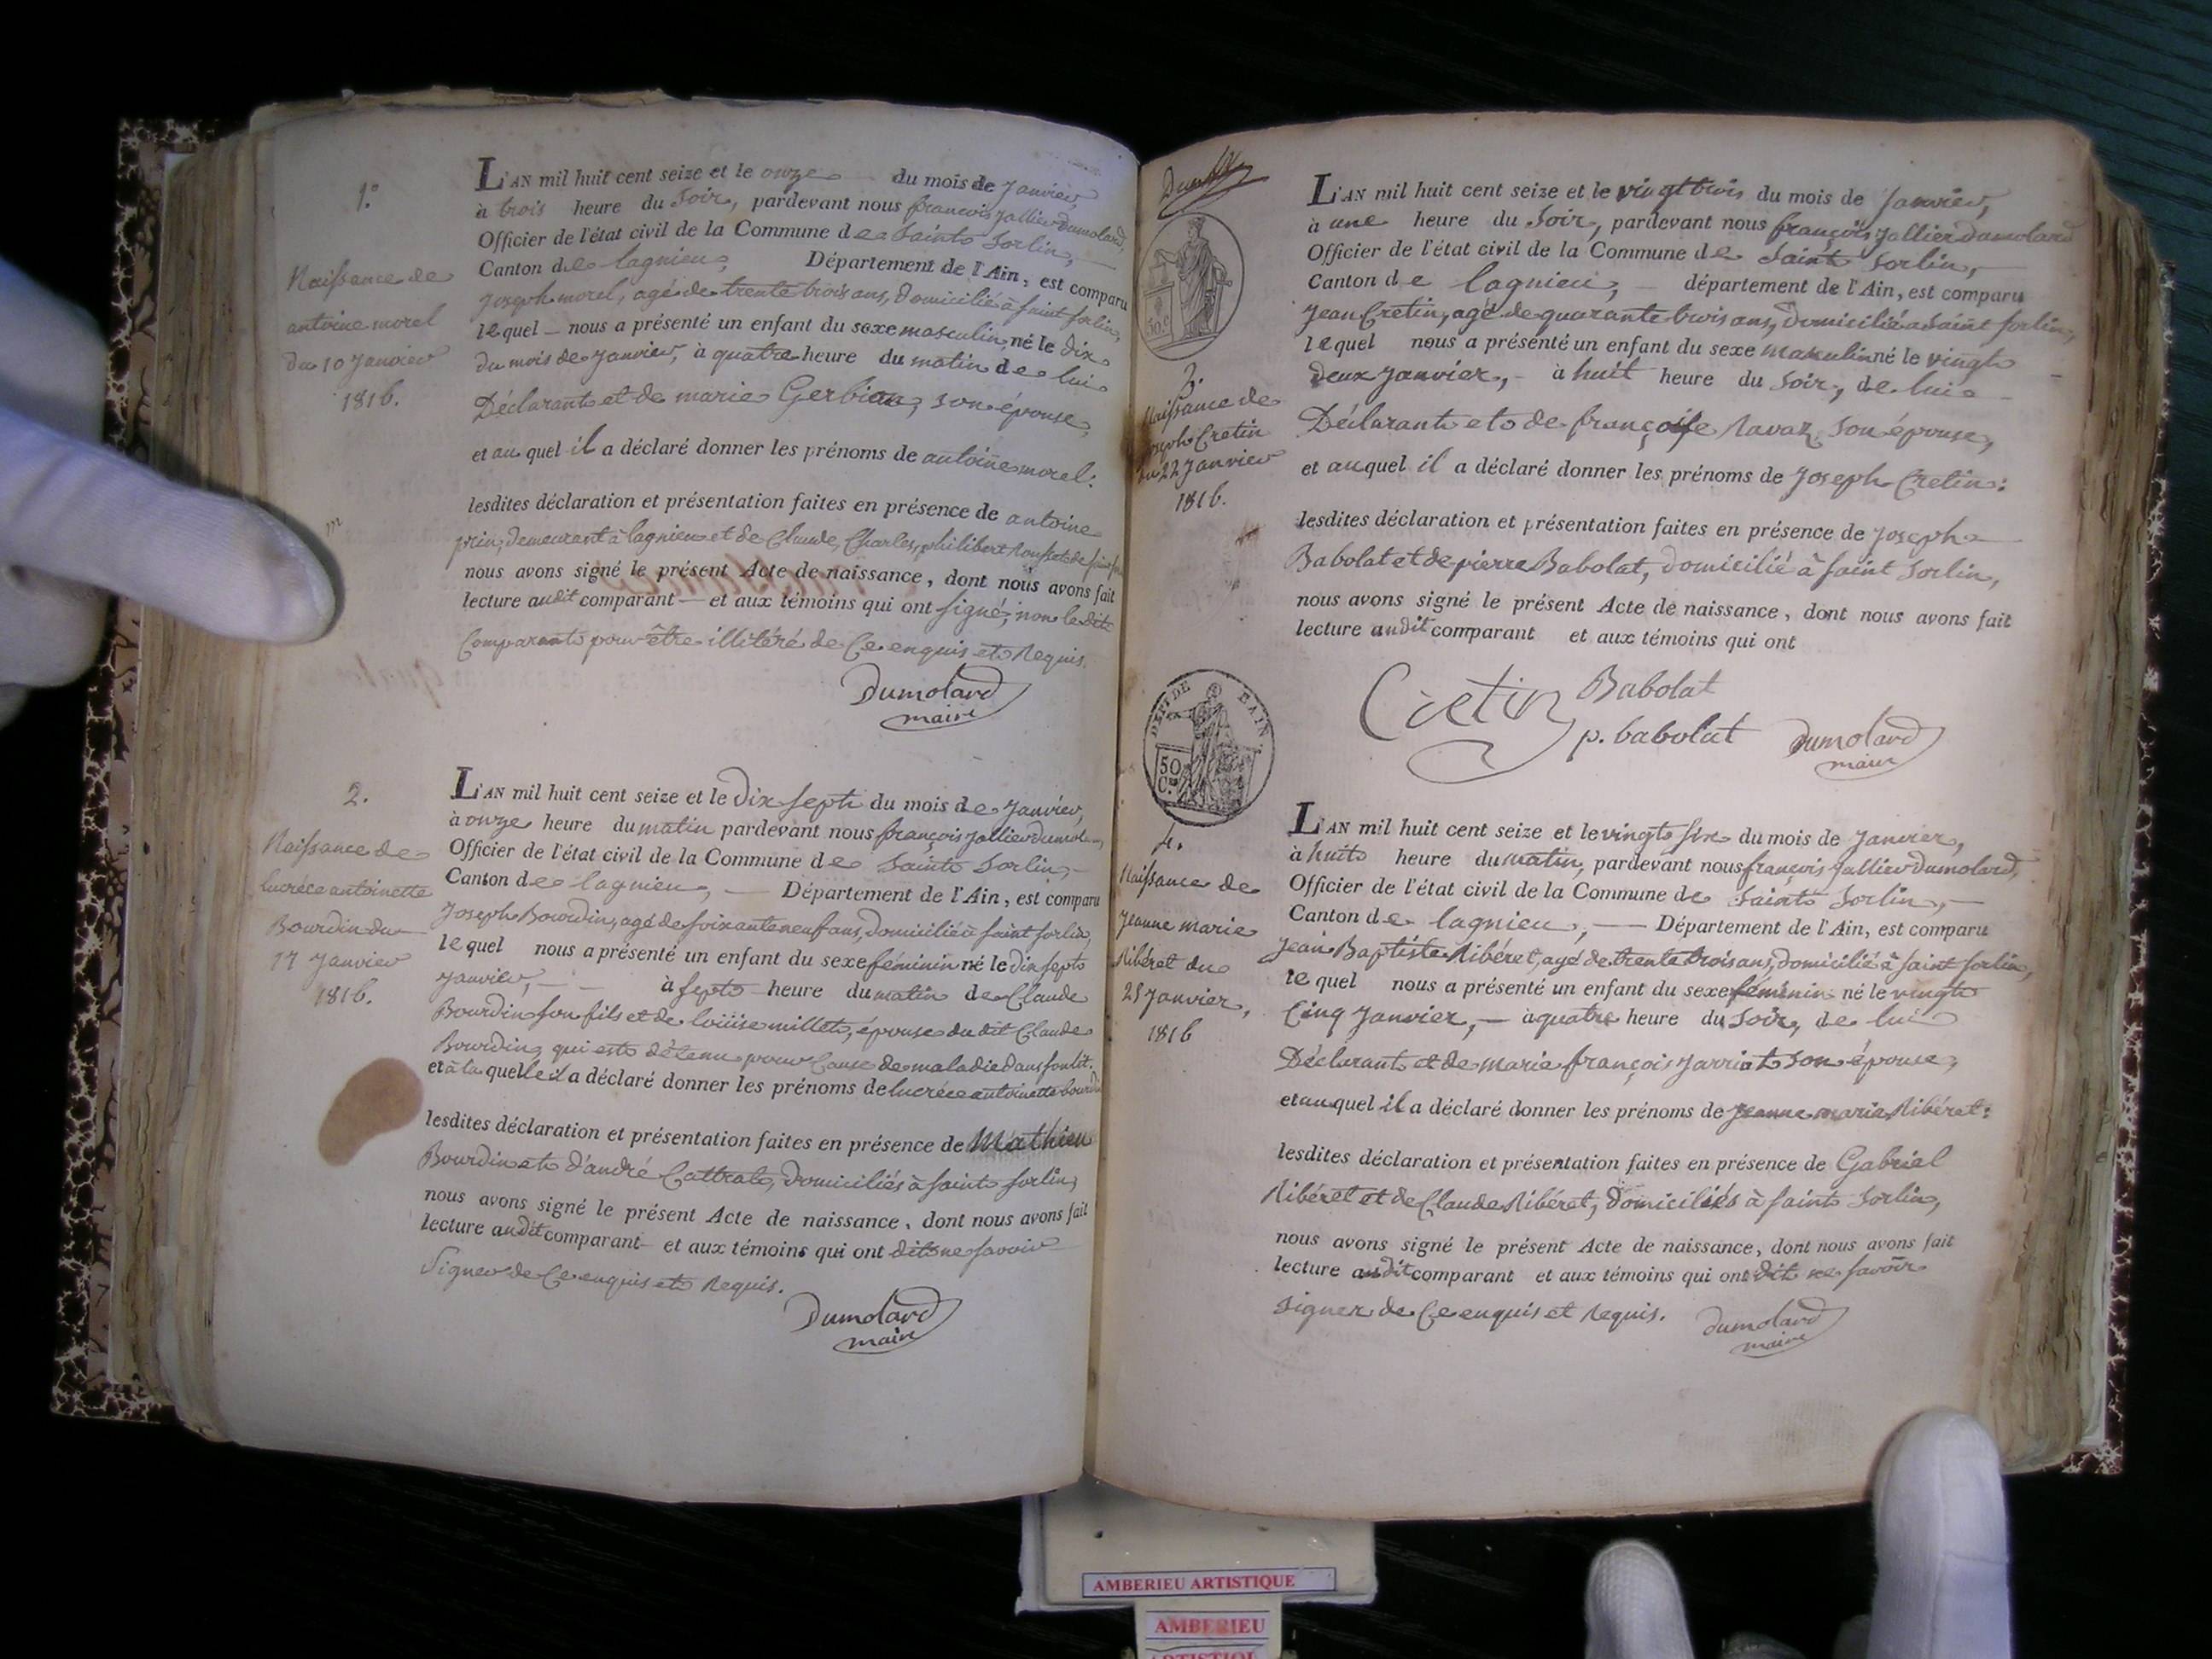 1.°
Naissance de
antoine morel
du 10 Janvier
1816.
L'AN mil huit cent seize et le onze du mois de Janvier,
à trois heure du Soir, pardevant nous françois jallier Dumolard,
Officier de l'état civil de la Commune de Saint Sorlin,
Canton de lagnieu, Département de l'Ain, est comparu
Joseph morel, agé de trente trois ans, Domicilié à saint sorlin,
lequel nous a présenté un enfant du sexe masculin, né le Dix
du mois de Janvier, à quatre heure du matin de lui
Déclarant et de marie son épouse,
et auquel il a déclaré donner les prénoms de antoine morel:
lesdites déclaration et présentation faites en présence de antoine
prin, demeurant à lagnieu et de Claude, Charles, philibert
nous avons signé le présent Acte de naissance, dont nous avons fait
lecture audit comparant et aux témoins qui ont signé, non le dit
Comparant pour être illitéré de Ce enquis et Requis.
Dumolard
maire
2.
Naissance de
lucrèce antoinette
Bourdin du
17 Janvier
1816.
L'AN mil huit cent seize et le Dix sept du mois de Janvier,
à onze heure du matin pardevant nous françois jallier
Officier de l'état civil de la Commune de Saint Sorlin,
Canton de lagnieu, Département de l'Ain, est comparu
Joseph Bourdin, agé de soixante neuf ans, Domicilié à saint sorlin,
lequel nous a présenté un enfant du sexe féminin né le Dix sept
Janvier, à sept heure du matin de Claude
Bourdin son fils et de loüise millet, épouse du dit Claude
Bourdin, qui est détenu pour Cause de maladie dans son lit.
et à laquelle il a déclaré donner les prénoms de lucrèce antoinette
lesdites déclaration et présentation faites en présence de Mathieu
Bourdin et d'andré Domiciliés à saint sorlin,
nous avons signé le présent Acte de naissance, dont nous avons fait
lecture audit comparant et aux témoins qui ont dit ne savoir
Signer de Ce enquis et Requis.
Dumolard
maire
50.C
3.
Naissance de
Joseph Cretin
du 22 Janvier
1816.
L'AN mil huit cent seize et le vingt trois du mois de Janvier,
à une heure du Soir, pardevant nous françois jallier Dumolard
Officier de l'état civil de la Commune de Saint Sorlin,
Canton de lagnieu, département de l'Ain, est comparu
Jean Cretin, agé de quarante trois ans, Domicilié à Saint Sorlin,
lequel nous a présenté un enfant du sexe masculin né le vingt
deux Janvier, à huit heure du Soir, de lui
Déclarant et de françoise Ravaz, Son épouse,
et auquel il a déclaré donner les prénoms de Joseph Cretin:
lesdites déclaration et présentation faites en présence de Joseph
Babolat et de pierre Babolat, domicilié à saint Sorlin,
nous avons signé le présent Acte de naissance, dont nous avons fait
lecture audit comparant et aux témoins qui ont
Cretin Babolat
p. babolat Dumolard
maire
DEPT DE L'AIN.
50 C.
4.
Naissance de
Jeanne marie
Ribéret du
25 Janvier,
1816
L'AN mil huit cent seize et le vingt six du mois de Janvier,
à huit heure du matin, pardevant nous françois jallier Dumolard,
Officier de l'état civil de la Commune de Saint Sorlin,
Canton de lagnieu, Département de l'Ain, est comparu
Jean Baptiste Ribéret, agé de trente trois ans, domicilié à saint sorlin,
lequel nous a présenté un enfant du sexe féminin né le vingt
Cinq Janvier, à quatre heure du Soir, de lui
Déclarant et de marie françois Jarriat son épouse,
et auquel il a déclaré donner les prénoms de Jeanne marie Ribéret:
lesdites déclaration et présentation faites en présence de Gabriel
Ribéret et de Claude Ribéret, Domiciliés à saint Sorlin,
nous avons signé le présent Acte de naissance, dont nous avons fait
lecture audit comparant et aux témoins qui ont dit ne savoir
Signer de Ce enquis et Requis.
Dumolard
maire
AMBERIEU ARTISTIQUE
AMBERIEU
ARTISTIQUE